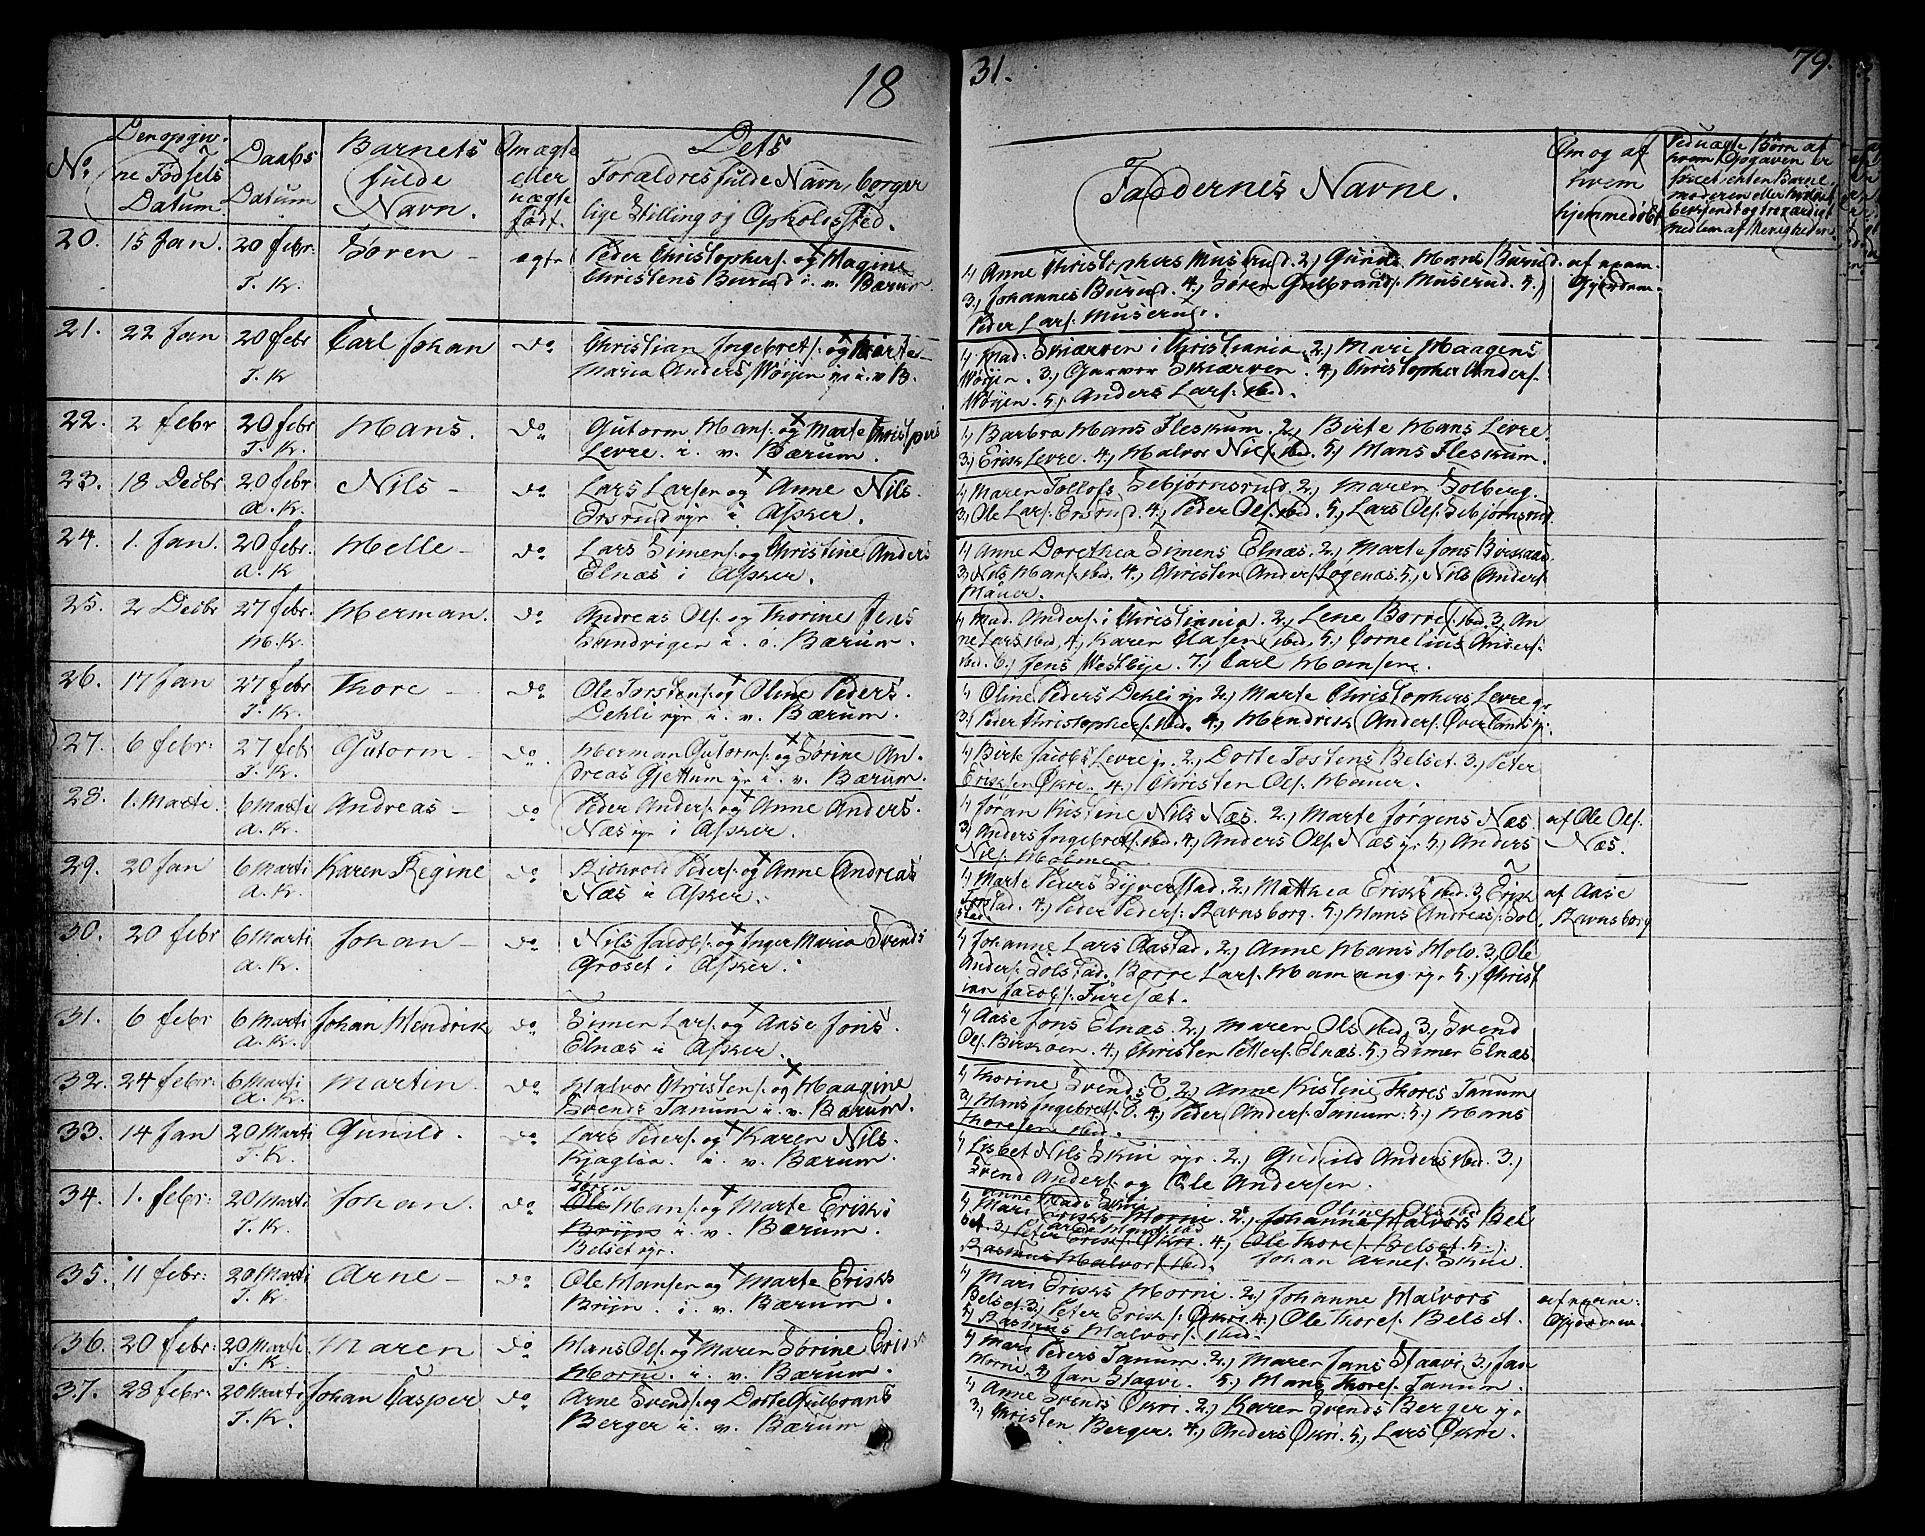 18
31.
79.
No
Den opgiv-
ne Fødsels
Datum
Daabs
Datum
Barnets
fulde
Navn.
Om ægte
eller
uægte
født.
Dets
Forældres fulde Navn, borger
lige Stilling og Opholdssted.
Faddernes Navne.
Om og af
hvem
hjemmedøbt
20. 15 Jan. 20 febr. Søren - ægte
T. K.
Peder Christophers. og Hagine
Christens Burud i v. Bærum
1, Anne Christophers Muserud. 2, Gunild Hans Burud.
3, Johannes Burud. 4, Søren Gulbrands. Muserud. 5,
Peder Lars. Muserud.
21. 22 Jan 20 febr Carl Johan do
T. K
Christian Ingebrets. og Marte
Maria Anders Wøyen gr i v B.
1, Mad. Skiærven i Christiania 2, Mari Haagens
Wøyen. 3, Gunvor Skiærven. 4, Christopher Anders.
Wøyen. 5, Anders Lars. ibid.
22. 2 febr 20 febr Hans. do
T. K.
Gutorm Hans. og Marte Christophers
Levre. i. v. Bærum.
1, Barbra Hans Fleskum. 2, Birte Hans Levre.
3, Erisk Levre. 4, Halvor Niels. ibid. 5, Hans Fleskum.
23. 18 Decbr 20 febr Nils - do
A. K.
Lars Larsen og Anne Nils.
i Asker.
3, Ole Lars. 4, Peder Ols. ibid. 5, Lars Ols.
24. 1. Jan. 20 febr. Helle - do
A. K
Lars Simens. og Christine Anders
Elnæs i Asker.
1, Anne Dorethea Simens Elnæs. 2, Marte Jons
3, Nils Hans. ibid. 4, Christen Anders. Løgenæs. 5, Nils Anders.
25. 2 Decbr 27 febr. Herman. do
H. K.
Andreas Ols. og Thorine Jens
Sandvigen i. ø. Bærum.
1, Mad. Anders. i Christiania. 2, Lene Børre. ibid. 3, An
ne Lars ibid. 4, Karen Clasen ibid. 5, Cornelius Anders.
ibid. 6, Jens Westbye. 7, Carl Hansen.
26. 17 Jan 27 febr Thore - do
T. K.
Ole Torstens. og Oline Peders.
Dehli gr i. v. Bærum.
1, Oline Peders Dehli gr 2, Marte Christophers Levre gr
3, Peder Christophers. ibid. 4, Hendrik Anders. Øverland gr.
27. 6 febr: 27 febr Gutorm - do
T. K.
Herman Gutorms. og Sørine An-
dreas Gjettum gr i. v. Bærum.
1, Birte Jacobs Levre gr. 2, Dorte Tostens Belset. 3, Peter
Erisksen Økri. 4, Christen Ols. Hauer.
28. 1. Marti. 6 Marti Andreas - do
A. K.
Peder Anders. og Anne Anders.
Næs gr i Asker.
1, Joran Kistine Nils Næs. 2, Marte Jørgens Næs.
3, Anders Ingebrets. ibid. 4, Anders Ols. Næs gr 5, Anders
Nils. Holmen
af Ole Ols.
Næs.
29. 20 Jan 6 Marti Karen Regine do
A. K.
Peders. og Anne Andreas
Næs i Asker.
1, Marte Peders Syverstad. 2, Matthea Erisks ibid. 3, Erisk
4, Peder Peders. Ravnsborg. 5, Hans Andreas. Sol
stad.
af Aase
Ravnsborg
30. 20 febr 6 Marti Johan - do
A. K.
Nils Jacobs. og Inger Maria Svends
Groset i Asker.
1, Johanne Lars Aastad. 2, Anne Hans Holo. 3, Ole
Anders. Solstad. Børre Lars. Hamang gr 5, Christ
ian Jacobs.
31. 6 febr 6 Marti Johan Hendrik do
A. K.
Simen Lars. og Aase Jons.
Elnæs i Asker.
1, Aase Jons Elnæs. 2, Maren Ols ibid. 3, Svend
Ols. 4, Christen Petters. Elnæs. 5, Simen Elnæs
32. 24 febr: 6 Marti Martin. do
A. K.
Halvor Christens. og Haagine
Svends Tanum i. v. Bærum.
1, Thorine Svends E. 2, Anne Kistine Thores Tanum
3, Hans Ingebrets. E. 4, Peder Anders. Tanum. 5, Hans
Thoresen ibid.
33. 14 Jan 20 Marti Gunild. do
T. K.
Lars Peders. og Karen Nils.
Kjaglia. i. v. Bærum.
1, Lisbet Nils Skui gr. 2, Gunild Anders ibid. 3,
Svend Anders. og Ole Andersen.
34. 1. febr: 20 Marti Johan. do
T. K.
Søren
Ole Hans. og Marte Erisks
Brijn i. v. Bærum.
Belset gr.
Mari Erisks Horni. 2, Johanne Halvors Bel
set. 3, Peter Erisks. Økri. 4, Ole Thores. Belset. 5,
Rasmus Halvors. ibid. Johan Arnes. Skui.
35. 11 febr: 20 Marti Arne - do
T. K.
Ole Hansen og Marte Erisks
Brijn. i. v. Bærum.
1, Mari Erisks Horni. 2, Johanne Halvors
Belset. 3, Peter Erisks. Økri. 4, Ole Thores. Belset.
5, Rasmus Halvors. ibid.
36. 20 febr: 20 Marti Maren do
T. K.
Hans Ols. og Maren Sørine Erisks
Horni. i. v. Bærum.
1, Mari Peders Tanum. 2, Maren Jans Staavi. 3, Jan
Horni. 4, Jan Staavi. 5, Hans Thores. Tanum.
37. 28 febr. 20 Marti Johan Casper do
T. K.
Arne Svends. og Dorte Gulbrans
Berger i. v. Bærum
1, Anne Svends Økri. 2, Karen Svends Berger gr
3, Christen Berger. 4, Anders Økri. 5, Lars Økri.